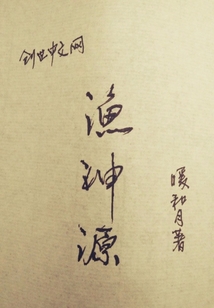 创世中文网
渔神源
暖和月著